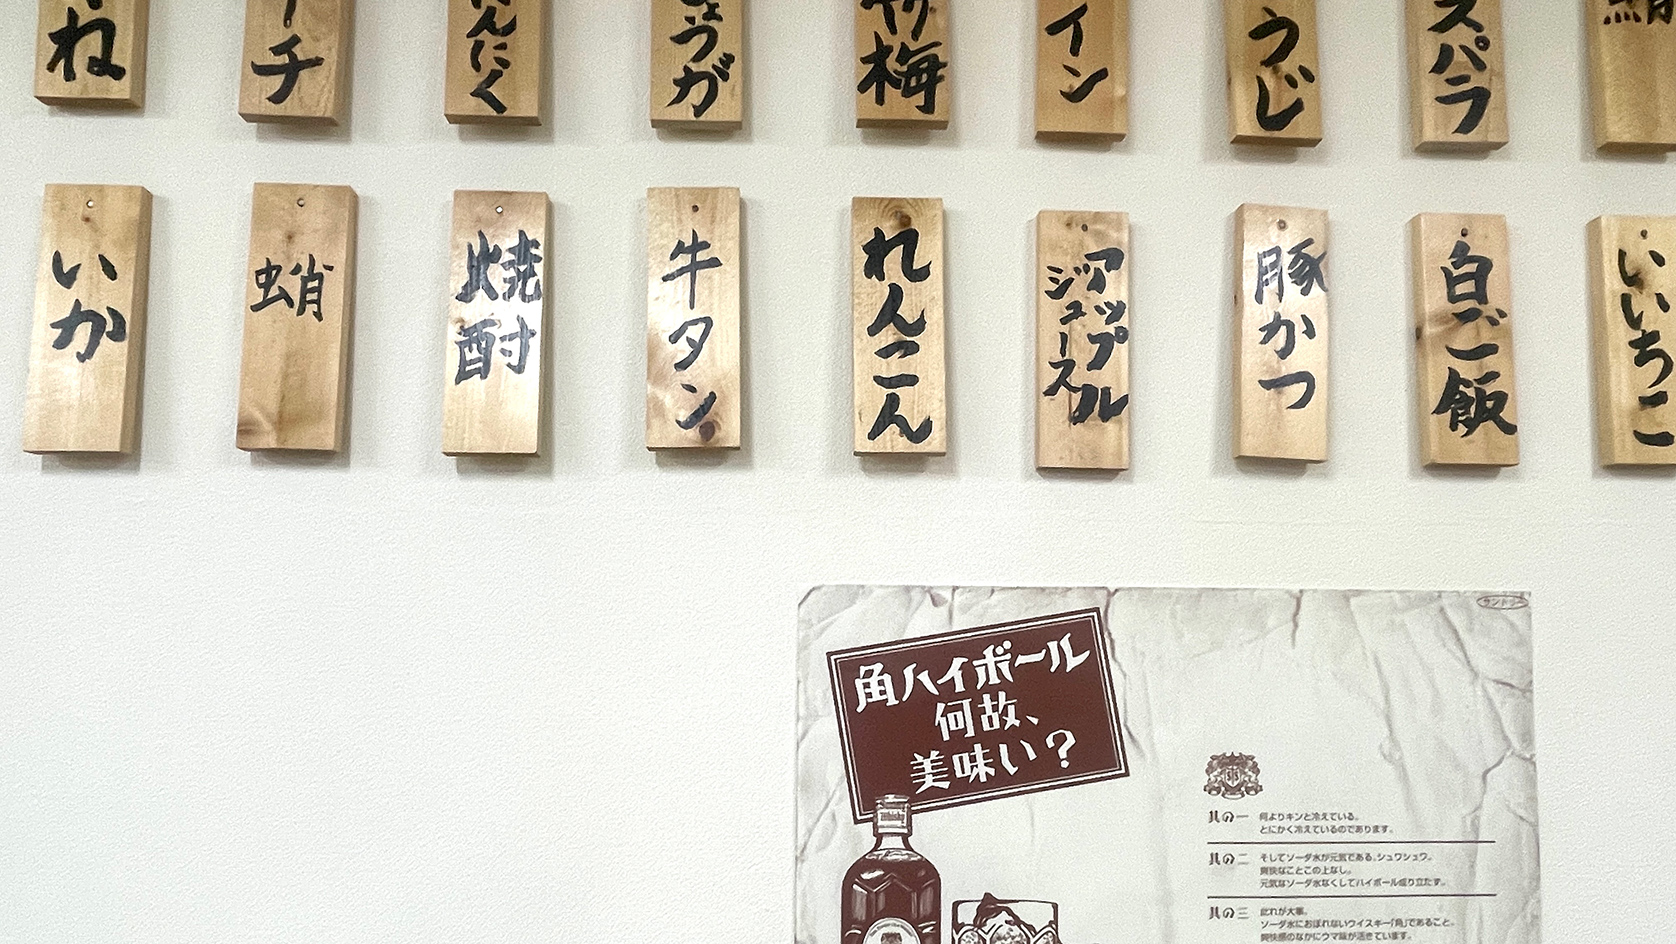 ね
ーチ
んにく
ょうが
梅
イン
うじ
スパラ
いか
蛸
焼酎
牛タン
れんこん
アップル
ジュース
豚かつ
白ご飯
いいちこ
サントリー
角ハイボール
何故、
美味い?
Whisky
其の一 何よりキンと冷えている。
とにかく冷えているのであります。
其の二 そしてソーダ水が元気である、シュワシュワ。
爽快なことこの上なし。
元気なソーダ水なくしてハイボール成り立たず。
其の三 此れが大事。
ソーダ水におぼれないウイスキー「角」であること。
爽快感のなかにウマ味が活きています。